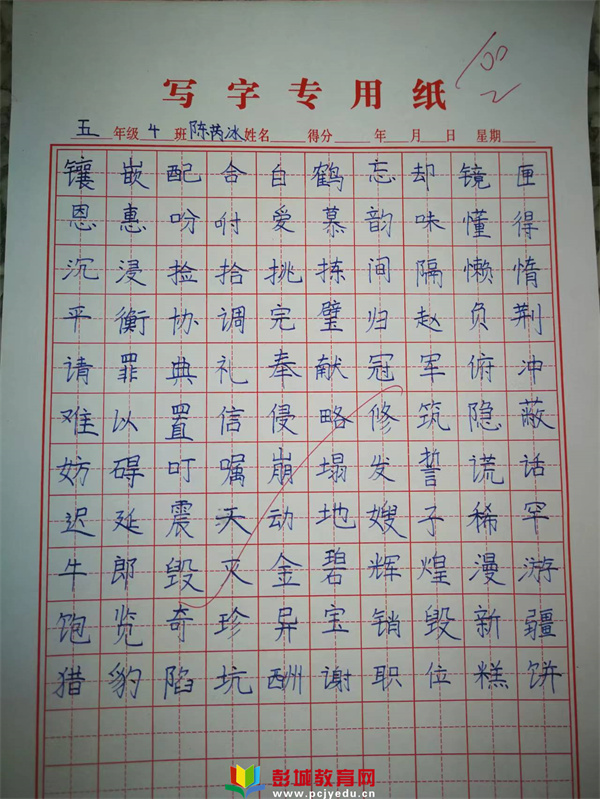 100
写字专用纸
五年级4班陈芮冰姓名 得分 年 月 日 星期
镶嵌配合白鹤忘却镜匣
恩惠吩咐爱慕韵味懂得
沉浸捡拾挑拣间隔懒惰
平衡协调完璧归赵负荆
请罪典礼奉献冠军俯冲
难以置信侵略修筑隐蔽
妨碍叮嘱崩塌发誓谎话
迟延震天动地嫂子稀罕
牛郎毁灭金碧辉煌漫游
饱览奇珍异宝销毁新疆
猎豹陷坑酬谢职位糕饼
彭城教育网
www.pcjyedu.cn